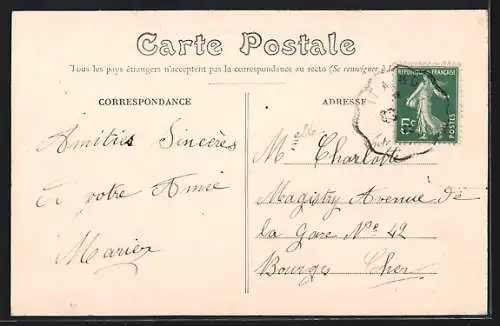 Carte Postale
Tous les pays étrangers n'acceptent pas la correspondance au recto (Se renseigner à la
CORRESPONDANCE
ADRESSE
REPUBLIQUE FRANÇAISE
5c
POSTES
Amitiés Sincères
de votre Amie
Marie
Melle Charlotte
Magistry Avenue de
la Gare No 42
Bourges Cher